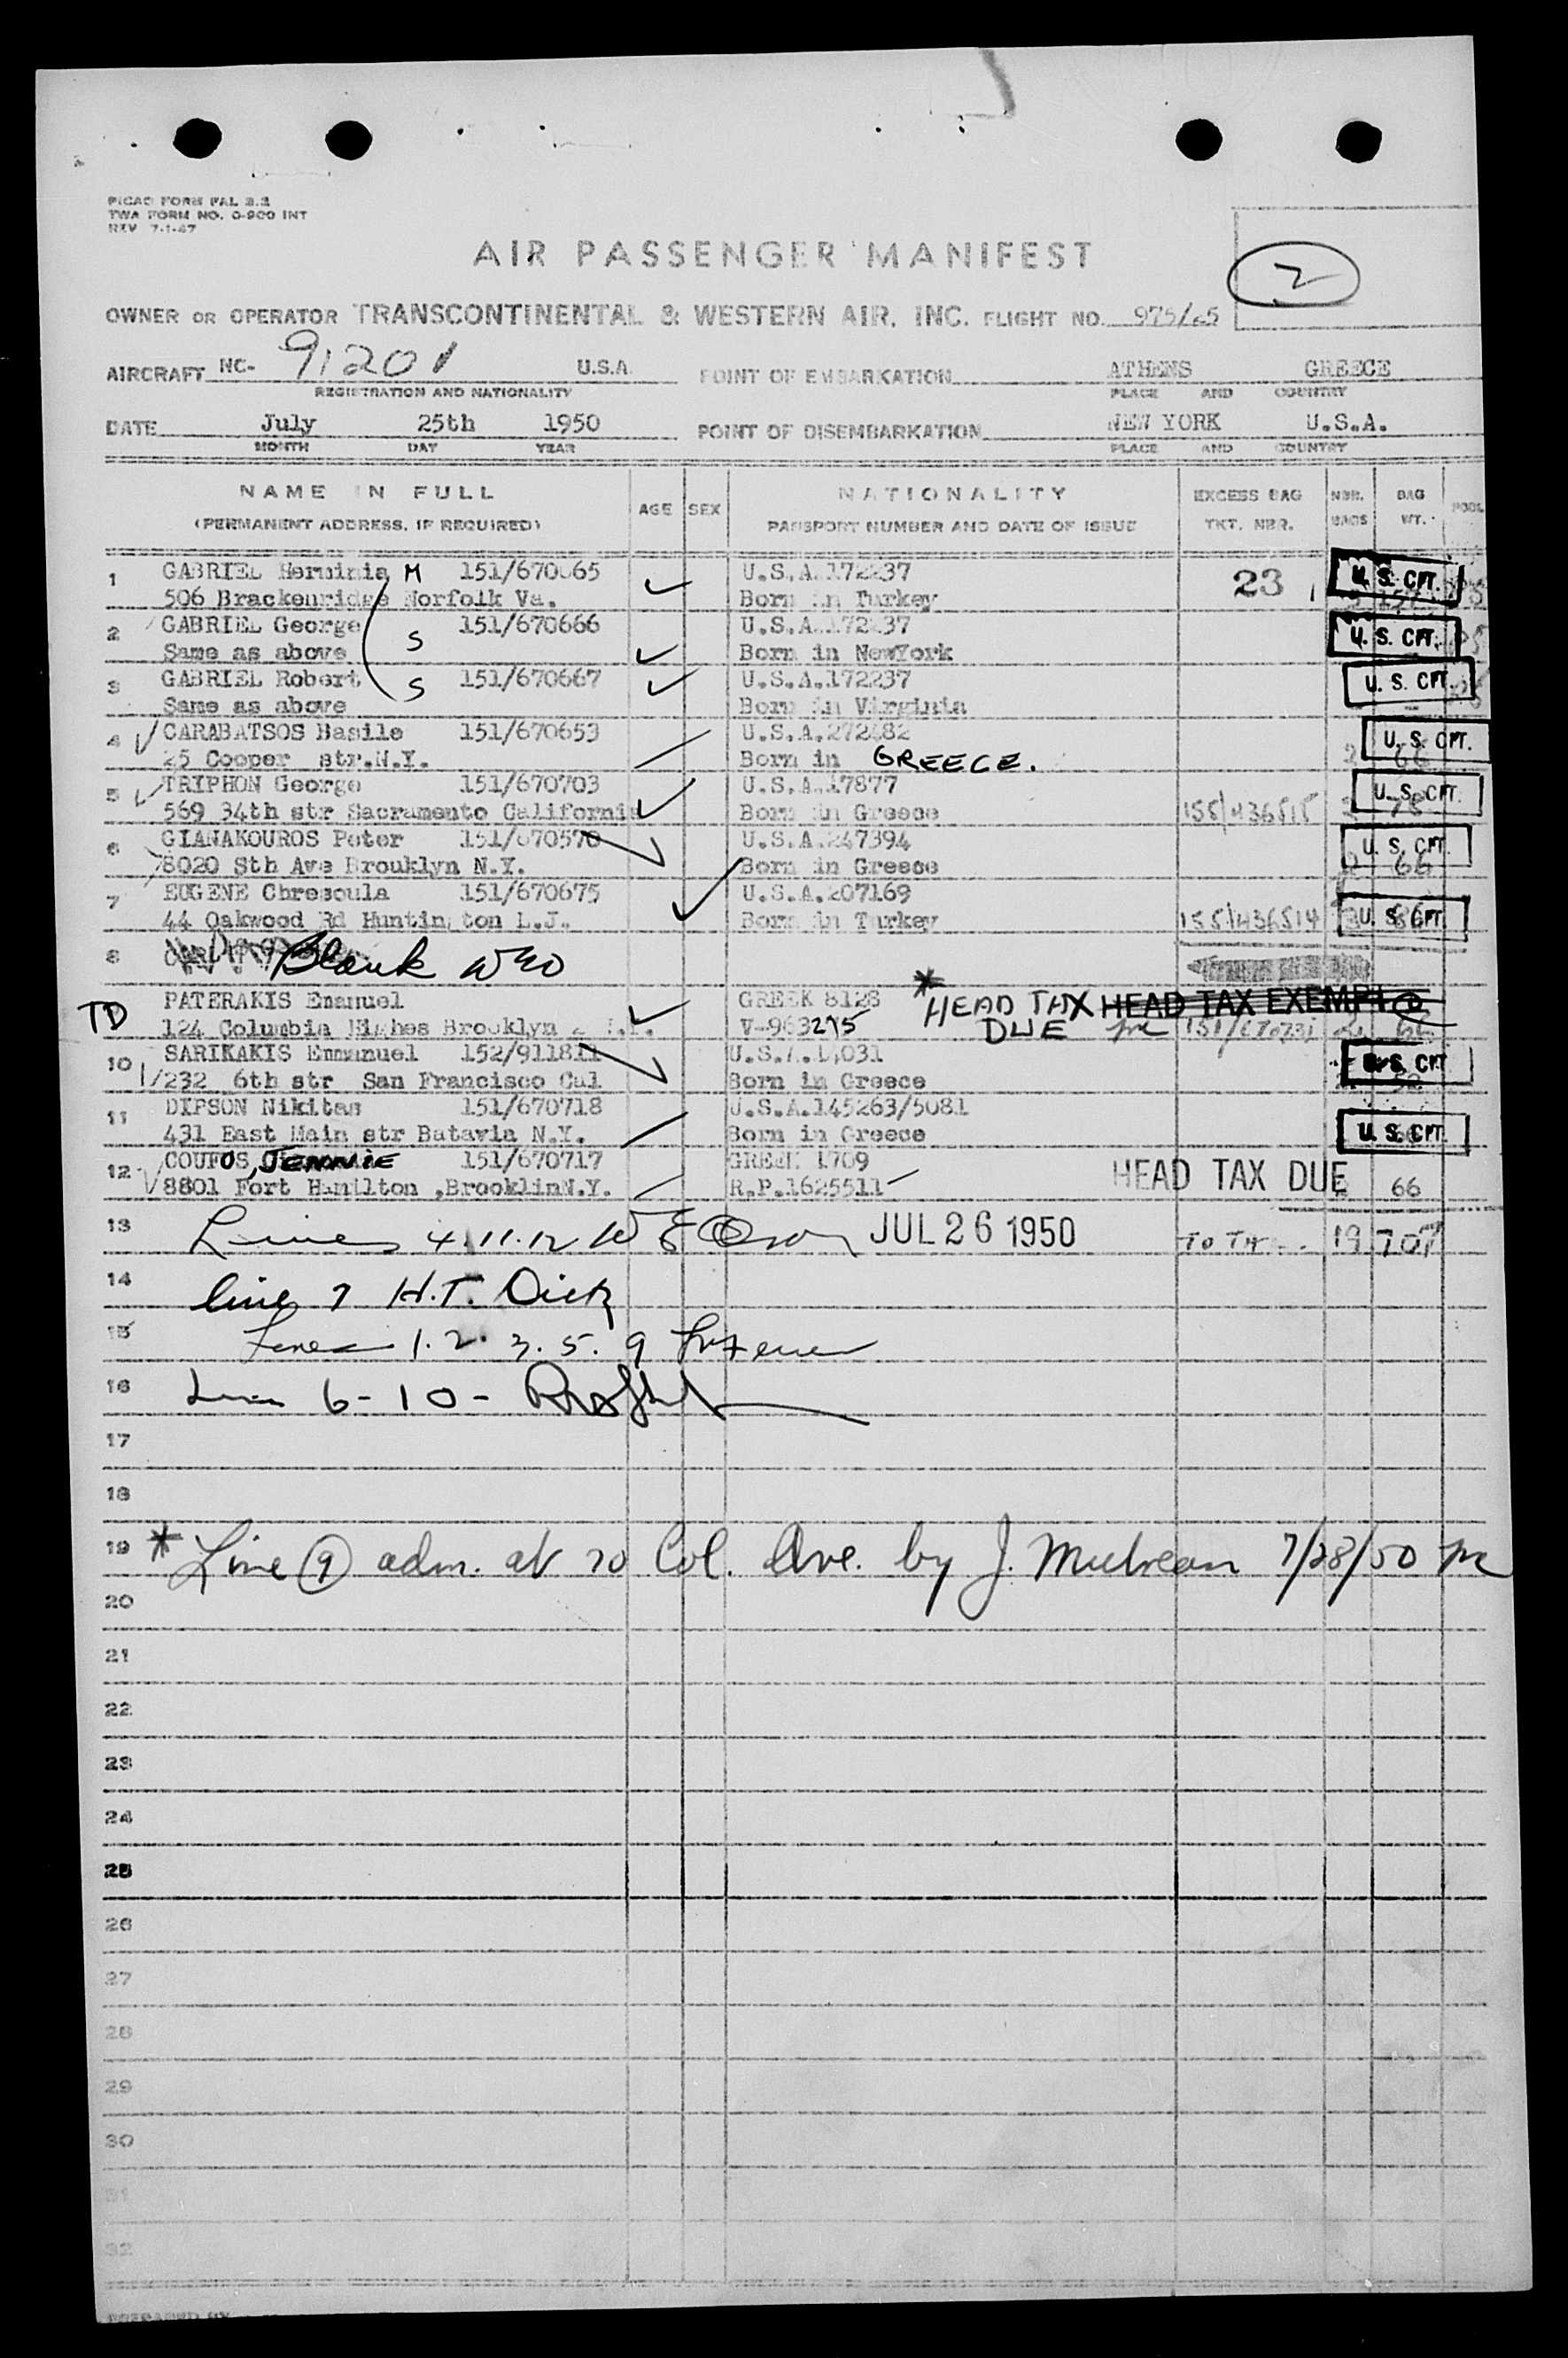 PICAO FORM PAL 2.2
TWA FORM NO. O-900 INT
REV 7-1-47
AIR PASSENGER MANIFEST
2
OWNER OR OPERATOR TRANSCONTINENTAL & WESTERN AIR, INC. FLIGHT NO. 975/25
AIRCRAFT NC- 91201 U.S.A. POINT OF EMBARKATION ATHENS GREECE
REGISTRATION AND NATIONALITY PLACE AND COUNTRY
DATE July 25th 1950 POINT OF DISEMBARKATION NEW YORK U.S.A.
MONTH DAY YEAR PLACE AND COUNTRY
NAME IN FULL AGE SEX NATIONALITY EXCESS BAG NBR. BAG POOL
(PERMANENT ADDRESS, IF REQUIRED) PASSPORT NUMBER AND DATE OF ISSUE TKT. NBR. BAGS WT.
1 GABRIEL Herminia M 151/670665 U.S.A.172237 23 U.S. CIT.
506 Brackenridge Norfolk Va. Born in Turkey
2 GABRIEL George S 151/670666 U.S.A.172237 U.S. CIT.
Same as above Born in NewYork
3 GABRIEL Robert S 151/670667 U.S.A.172237 U.S. CIT.
Same as above Born in Virginia
4 CARABATSOS Basile 151/670653 U.S.A.272482 U.S. CIT.
25 Cooper str.N.Y. Born in GREECE. 2 66
5 TRIPHON George 151/670703 U.S.A.17877 U.S. CIT.
569 34th str Sacramento California Born in Greece 155/436515
6 GIANAKOUROS Peter 151/670570 U.S.A.247394 U.S. CIT.
8020 5th Ave Brouklyn N.Y. Born in Greece 2 66
7 EUGENE Chresoula 151/670675 U.S.A.207169
44 Oakwood Rd Huntington L.J. Born in Turkey 155/436514 U.S. CIT.
8 Blank WEO
TD PATERAKIS Emanuel GREEK 8128 * HEAD TAX HEAD TAX EXEMPT
124 Columbia Highes Brooklyn 2 N.Y. V-963275 DUE 151/670731 2 66
10 SARIKAKIS Emmanuel 152/911811 U.S.A.14031 U.S. CIT.
1/232 6th str San Francisco Cal Born in Greece
11 DIPSON Nikitas 151/670718 U.S.A.145263/5081
431 East Main str Batavia N.Y. Born in Greece U.S. CIT.
12 COUFOS, JENNIE 151/670717 GREEK 1709 HEAD TAX DUE
8801 Fort Hamilton ,BrooklinN.Y. R.P.1625511 66
13 Lines 4.11.12 W E Olson JUL 26 1950 TOTAL 19 707
14 line 7 H.T. Dick
15 Lines 1. 2. 3. 5. 9
16 6-10-
17
18
19 * Line 9 adm. at 70 Col. Ave. by J. Mulrean 7/28/50
20
21
22
23
24
25
26
27
28
29
30
31
32
PREPARED BY